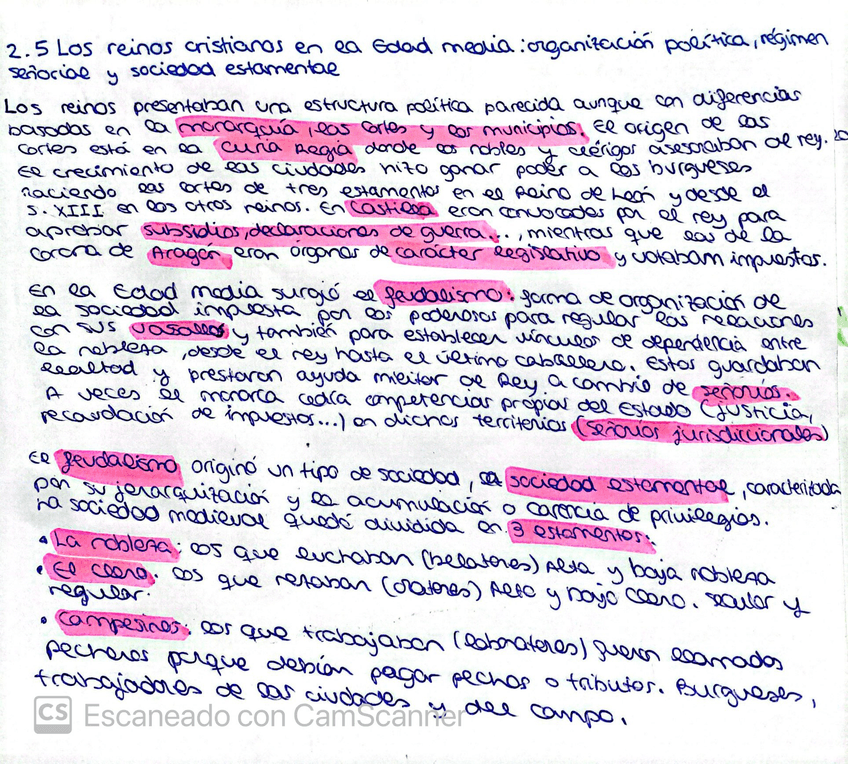 2.5 Los reinos cristianos en la Edad media: organización política, régimen
señorial y sociedad estamental
Los reinos presentaban una estructura política parecida aunque con diferencias
basadas en la monarquía, las cortes y los municipios. El origen de las
cortes está en la curia Regia donde los nobles y clérigos asesoraban al rey.
El crecimiento de las ciudades hizo ganar poder a los burgueses
naciendo las cortes de tres estamentos en el Reino de León y desde el
s. XIII en los otros reinos. En Castilla eran convocadas por el rey para
aprobar subsidios, declaraciones de guerra..., mientras que las de la
corona de Aragón eran órganos de carácter legislativo y votaban impuestos.
En la Edad media surgió el feudalismo: forma de organización de
la sociedad impuesta por los poderosos para regular las relaciones
con sus vasallos y también para establecer vínculos de dependencia entre
la nobleza, desde el rey hasta el último caballero. Estos guardaban
lealtad y prestaron ayuda militar al Rey a cambio de señoríos.
A veces el monarca cedía competencias propias del Estado (justicia,
recaudación de impuestos...) en dichos territorios (señoríos jurisdiccionales)
El feudalismo originó un tipo de sociedad, la sociedad estamental, caracterizada
por su jerarquización y la acumulación o carencia de privilegios.
La sociedad medieval quedó dividida en 3 estamentos:
• La nobleza: los que luchaban (bellatores) Alta y baja nobleza
• El Clero: los que rezaban (oratores) Alto y bajo Clero. Secular y
regular.
• Campesinos: los que trabajaban (laboratores) fueron llamados
pecheros porque debían pagar pechos o tributos. Burgueses,
trabajadores de las ciudades y del campo.
CS Escaneado con CamScanner